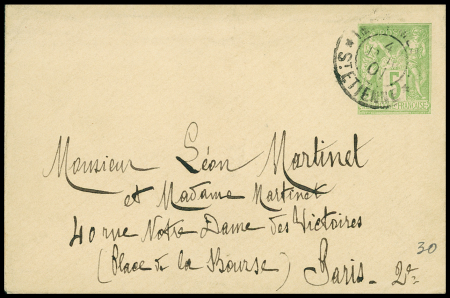 ST ETIENNE
01
5
Monsieur Léon Martinet
et Madame Martinet
40 rue Notre Dame des Victoires
(Place de la Bourse) Paris - 2e
30